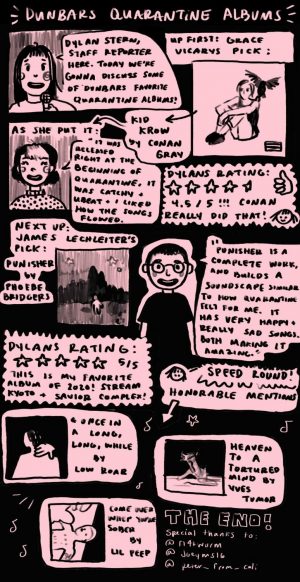 DUNBARS QUARANTINE ALBUMS
DYLAN STERN,
STAFF REPORTER
HERE. TODAY WE'RE
GONNA DISCUSS SOME
OF DUNBARS FAVORITE
QUARANTINE ALBUMS!
UP FIRST: GRACE
VICARYS PICK:
AS SHE PUT IT:
KID
KROW
BY
CONAN
GRAY
"IT WAS
RELEASED
RIGHT AT THE
BEGINNING OF
QUARANTINE. IT
WAS CATCHY
+ I LIKED
HOW THE SONGS
FLOWED.
DYLANS RATING:
4.5/5!!! CONAN
REALLY DID THAT!
NEXT UP:
JAMES LECHLEITER'S
PICK:
PUNISHER
BY
PHOEBE
BRIDGERS
"PUNISHER IS A
COMPLETE WORK,
AND BUILDS A
SOUNDSCAPE SIMILAR
TO HOW QUARANTINE
FELT FOR ME. IT
HAS VERY HAPPY +
REALLY SAD SONGS.
BOTH MAKING IT
AMAZING."
DYLANS RATING:
5/5
THIS IS MY FAVORITE
ALBUM OF 2020! STREAM
KYOTO + SAVIOR COMPLEX!
SPEED ROUND!
HONORABLE MENTIONS
ONCE IN
A LONG,
LONG, WHILE
BY
LOW ROAR
HEAVEN
TO A
TORTURED
MIND BY
YVES
TUMOR
COME OVER
WHEN YOU'RE
SOBER
BY
LIL PEEP
THE END!
Special thanks to: